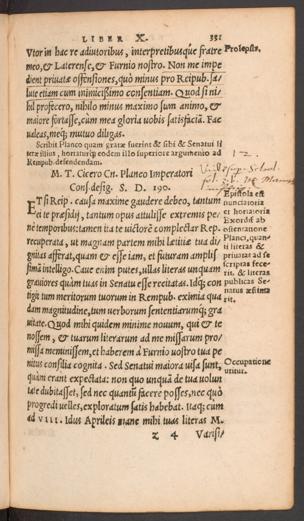 LIBER X. 331
Vtor in hac re adiutoribus, interpretibusq́ue fratre
meo, & Laterense, & Furnio nostro. Non me impe
dient priuatæ offensiones, quò minus pro Reipub. sa-
lute etiam cum inimicißimo consentiam. Quod si ni-
hil profecero, nihilo minus maximo sum animo, &
maiore fortasse, cum mea gloria uobis satisfaciā. Fac
ualeas, meq; mutuo diligas.
Prolepsis.
Scribit Planco quam gratæ fuerint & sibi & Senatui li
teræ illius, hortaturq́; eodem illo superiore argumento ad
Reipub. defendendam.
M. T. Cicero Cn. Planco Imperatori
Cons. desig. S. D. 190.
12.
ET si Reip. causa maxime gaudere debeo, tantum
ei te præsidij, tantum opus attulisse extremis pe-
ne temporibus: tamen ita te uictorē complectar Rep.
recuperata, ut magnam partem mihi lætitiæ tua di-
gnitas afferat, quam & esse iam, et futuram amplis
simā intelligo. Caue enim putes, ullas literas unquam
grauiores quàm tuas in Senatu esse recitatas. Idq; con
tigit tum meritorum tuorum in Rempub. eximia qua
dam magnitudine, tum uerborum sententiarumq́; gra
uitate. Quod mihi quidem minime nouum, qui & te
nossem, & tuarum literarum ad me missarum pro-
missa meminissem, et haberem à Furnio uostro tua pe
nitus consilia cognita. Sed Senatui maiora uisa sunt,
quàm erant expectata: non quo unquā de tua uolun
tate dubitasset, sed nec quantū facere posses, nec quò
progredi uelles, exploratum satis habebat. Itaq; cum
ad VIII. Idus Aprileis mane mihi tuas literas M.
Epistola est
nunciatoria
et hortatoria
Exordiū ab
ostentatione
Planci, quan
ti literas &
priuatas ad se
scriptas fece-
rit, & literas
publicas Se-
natus æstima
rit.
Occupatione
utitur.
z 4 Varisi/